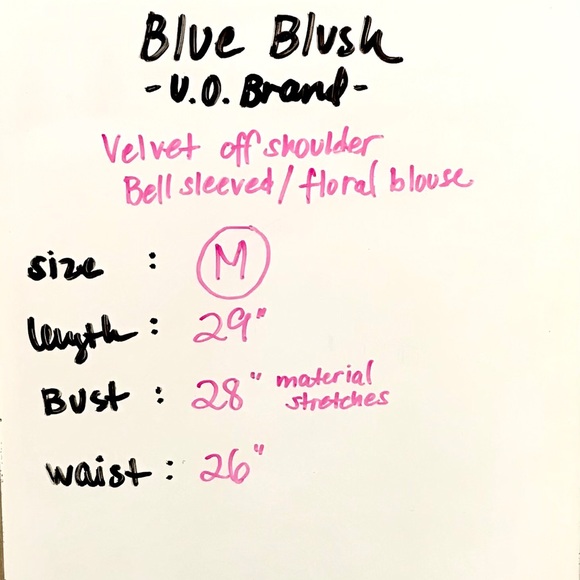 Blue Blush
-U.O. Brand-
Velvet off shoulder
Bell sleeved/floral blouse
size : M
length : 29"
Bust : 28" material stretches
waist : 26"